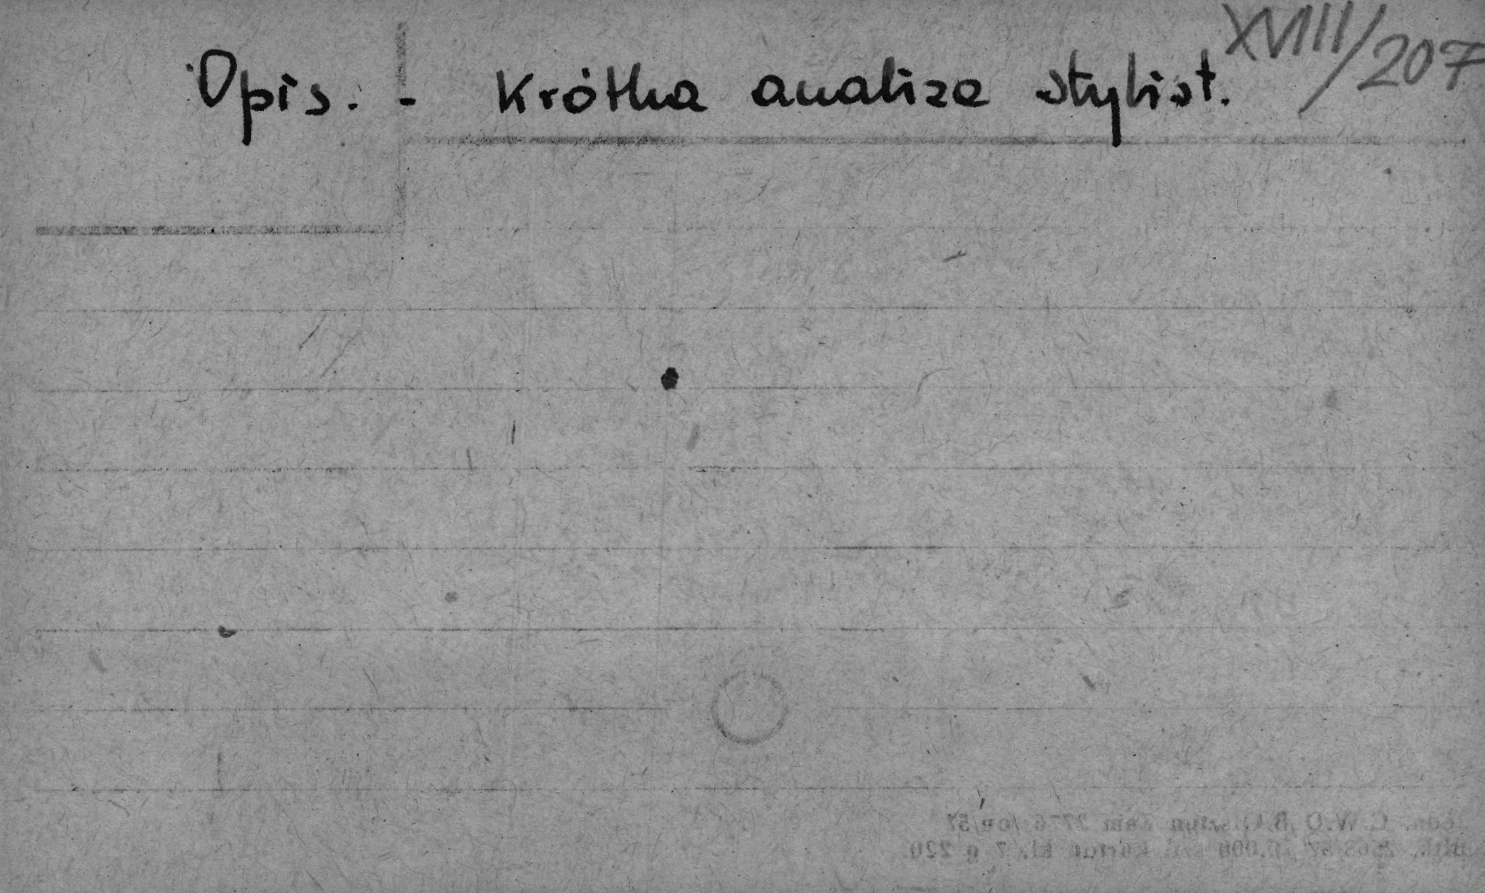 XVIII/207
Opis. - Krótka analiza stylist.